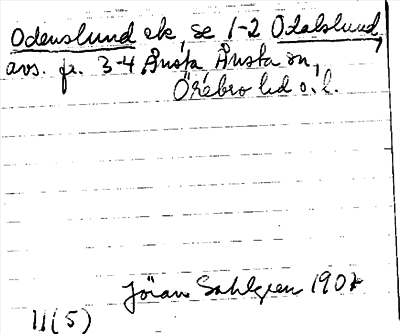 Odenslund ek, se 1-2 Odalslund,
avs. fr. 3-4 Ånsta Ånsta sn,
Örebro hd o. l.
Jöran Sahlgren 1907
11(5)